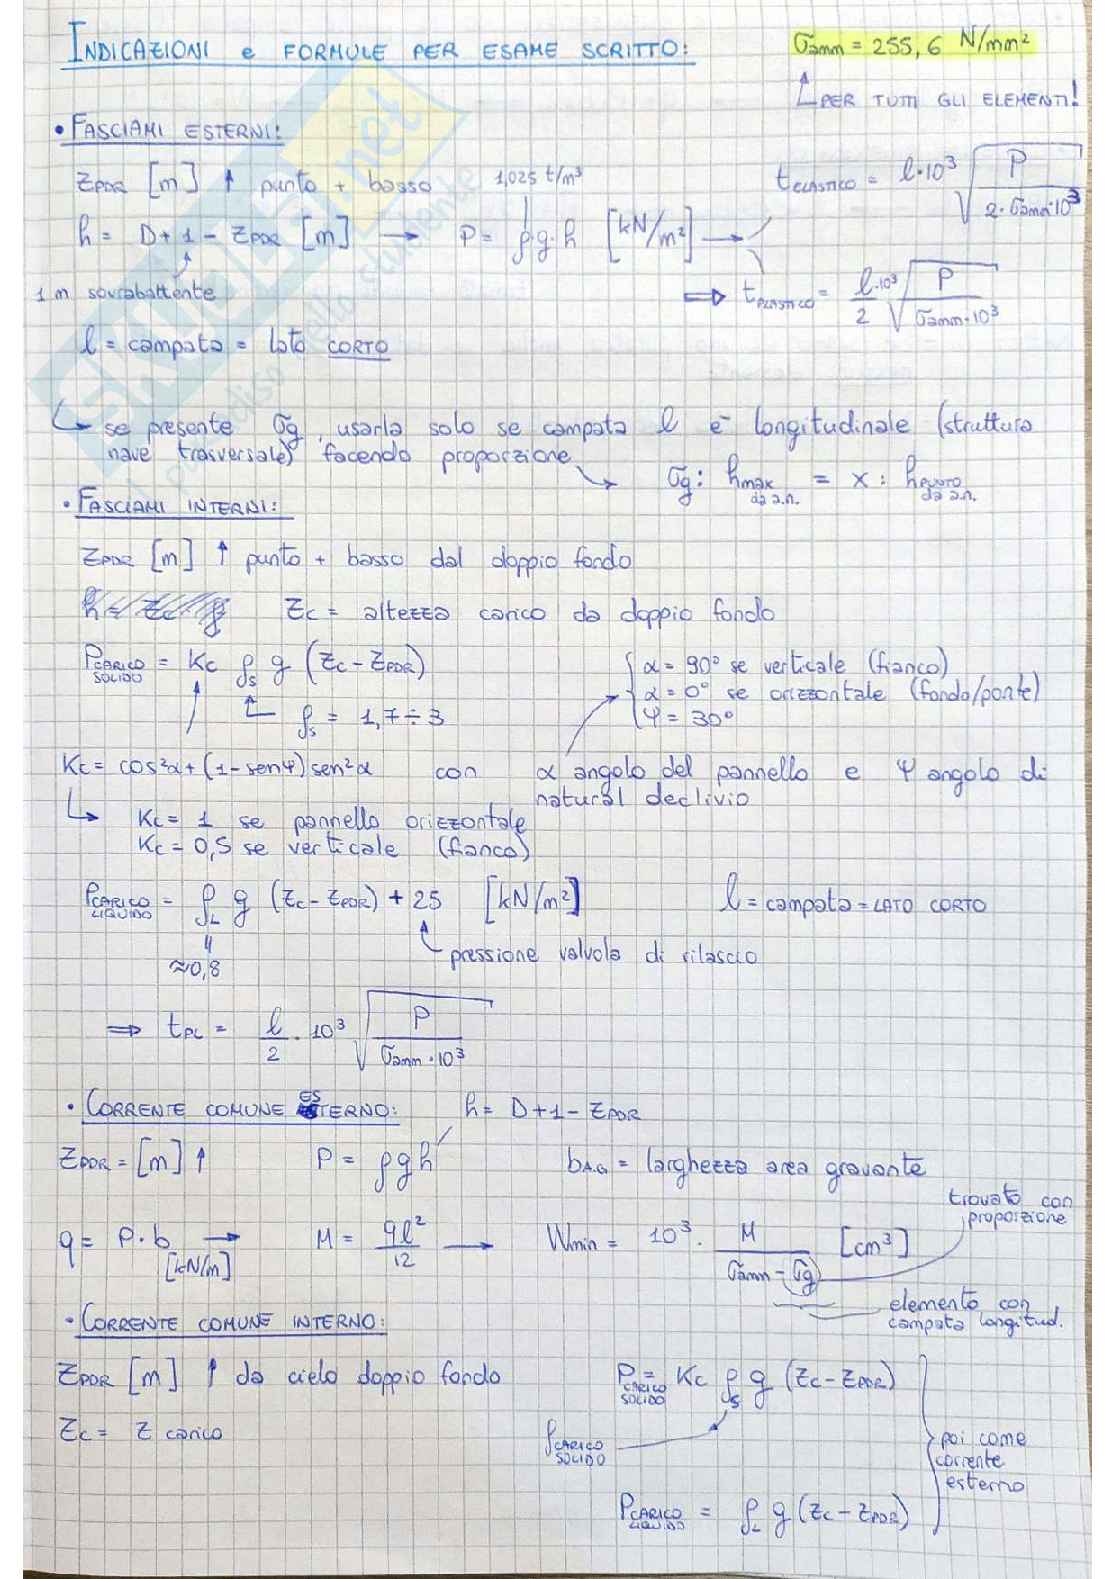 INDICAZIONI e FORMULE PER ESAME SCRITTO: σamm = 255,6 N/mm²
PER TUTTI GLI ELEMENTI!
• FASCIAMI ESTERNI:
ZPDR [m] ↑ punto + basso 1,025 t/m³ tELASTICO = l·10³ √(P / 2·σamm·10³)
h = D+1 - ZPDR [m] → P = ρ·g·h [kN/m²] →
1 m sovrabattente ⇒ tPLASTICO = l·10³/2 √(P / σamm·10³)
l = campata = lato CORTO
↳ se presente σg, usarla solo se campata l è longitudinale (struttura
nave trasversale) facendo proporzione → σg : hmax da a.n. = x : hPUNTO da a.n.
• FASCIAMI INTERNI:
ZPDR [m] ↑ punto + basso dal doppio fondo
Zc = altezza carico da doppio fondo
PCARICO SOLIDO = Kc ρs g (Zc - ZPDR)
ρs = 1,7 ÷ 3
α = 90° se verticale (fianco)
α = 0° se orizzontale (fondo/ponte)
Ψ = 30°
Kc = cos²α + (1 - senΨ) sen²α con α angolo del pannello e Ψ angolo di
natural declivio
↳ Kc = 1 se pannello orizzontale
Kc = 0,5 se verticale (fianco)
PCARICO LIQUIDO = ρL g (Zc - ZPDR) + 25 [kN/m²] l = campata = LATO CORTO
≈0,8 pressione valvola di rilascio
⇒ tPL = l/2 · 10³ √(P / σamm·10³)
• CORRENTE COMUNE ESTERNO: h = D+1 - ZPDR
ZPDR = [m] ↑ P = ρgh bA.G = larghezza area gravante
trovato con
proporzione
q = P·b [kN/m] → M = ql²/12 → Wmin = 10³ · M / (σamm - σg) [cm³]
elemento con
campata longitud.
• CORRENTE COMUNE INTERNO:
ZPDR [m] ↑ da cielo doppio fondo PCARICO SOLIDO = Kc ρs g (Zc - ZPDR)
Zc = Z carico ρCARICO SOLIDO
poi come
corrente
esterno
PCARICO LIQUIDO = ρL g (Zc - ZPDR)